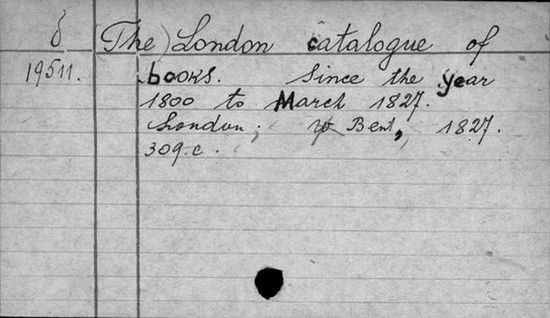 δ (The) London catalogue of
19511. books. Since the year
1800 to March 1827.
London; W Bent, 1827.
309. c.